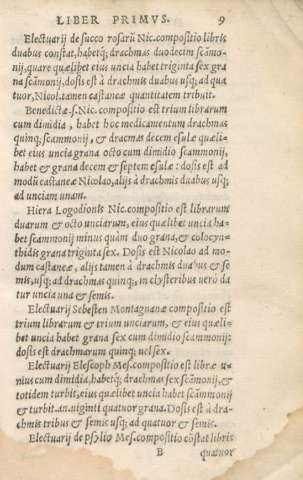 LIBER PRIMVS. 9
Electuarij de succo rosarũ Nic.compositio libris
duabus constat, habetq; drachmas duodecim scāmo-
nij, quare quælibet eius uncia habet triginta sex gra
na scāmonij, dosis est à drachmis duabus usq; ad qua
tuor, Nicol.tamen castaneæ quantitatem tribuit.
Benedictæ.s.Nic.compositio est trium librarum
cum dimidia, habet hoc medicamentum drachmas
quinq; scammonij, & dracmas decem esulæ quæli-
bet eius uncia grana octo cum dimidio scammonij,
habet & grana decem & septem esulæ: dosis est ad
modũ castaneæ Nicolao, alijs à drachmis duabus usq;
ad unciam unam.
Hiera Logodionis Nic.compositio est librarum
duarum & octo unciarum, eius quælibet uncia ha-
bet scammonij minus quàm duo grana, & colocyn-
thidis grana triginta sex. Dosis est Nicolao ad mo-
dum castaneæ, alijs tamen à drachmis duabus & se
mis, usq; ad drachmas quinq;, in clysteribus uerò da
tur uncia una & semis.
Electuarij Sebesten Montagnanæ compositio est
trium librarum & trium unciarum, & eius quæli-
bet uncia habet grana sex cum dimidio scammonij:
dosis est drachmarum quinq; uel sex.
Electuarij Elescoph Mes.compositio est libræ u-
nius cum dimidia, habetq; drachmas sex scāmonij, &
totidem turbit, eius quælibet uncia habet scāmonij
& turbit.an.uiginti quatuor grana. Dosis est à dra-
chmis tribus & semis usq; ad quatuor & semis.
Electuarij de psylio Mes.compositio cōstat libris
B quatuor